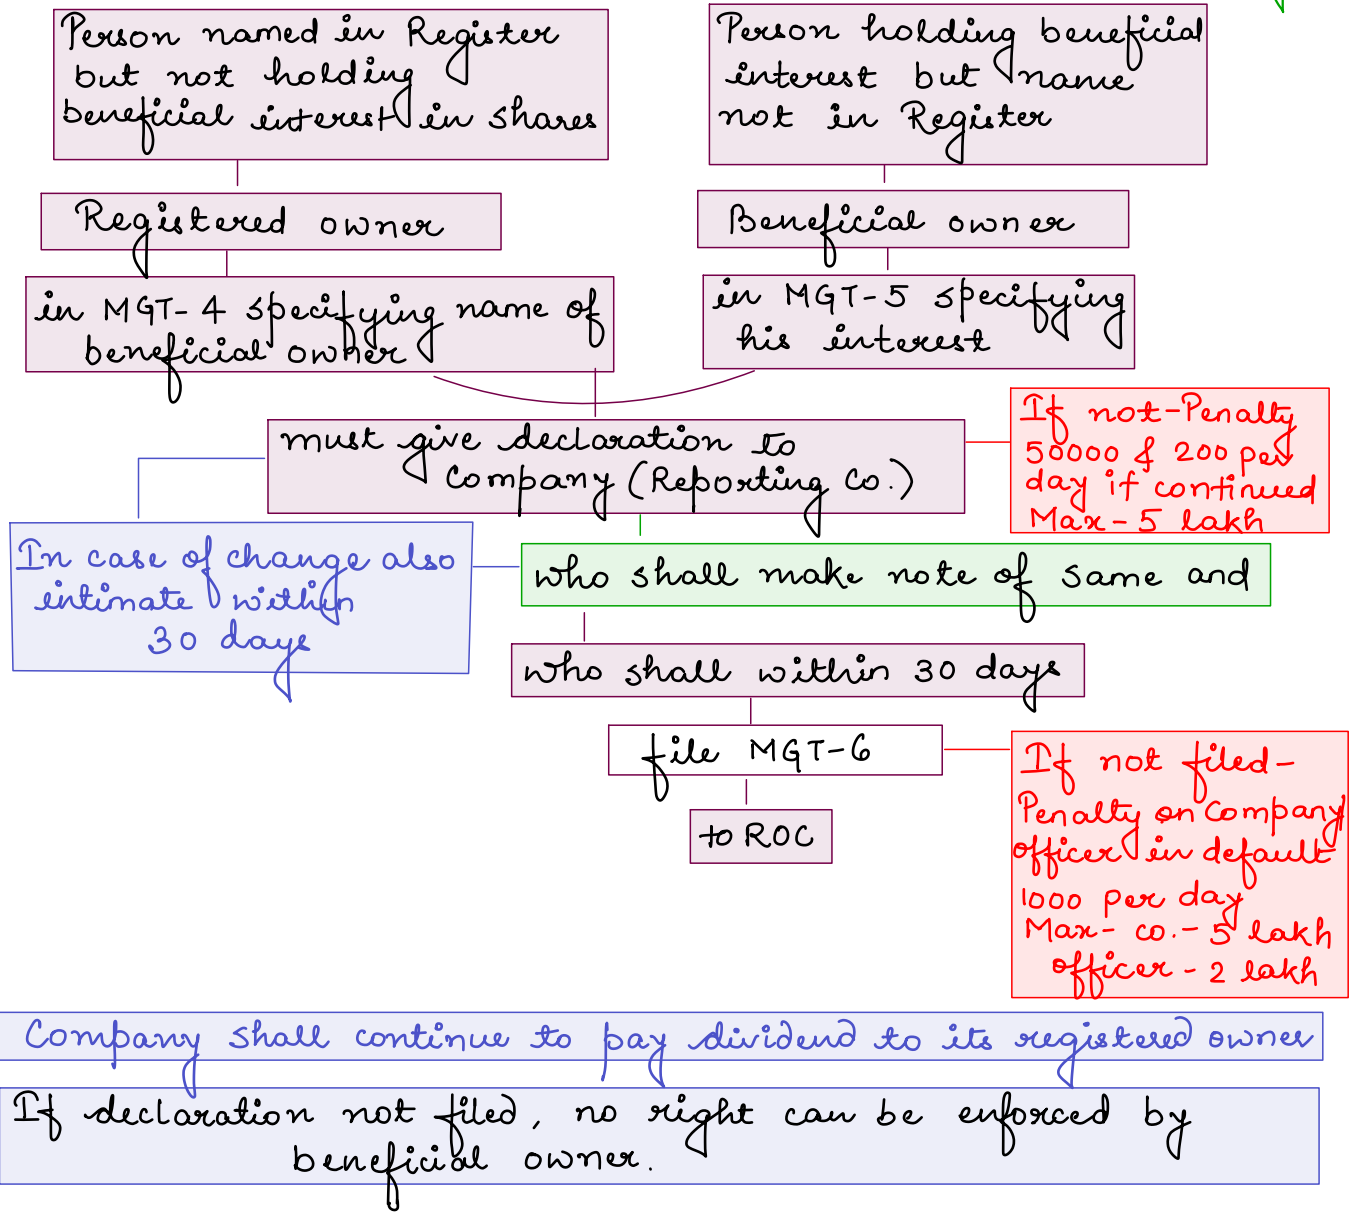 Person named in Register
but not holding
beneficial interest in shares
Person holding beneficial
interest but name
not in Register
Registered owner
Beneficial owner
in MGT-4 specifying name of
beneficial owner
in MGT-5 specifying
his interest
must give declaration to
Company (Reporting Co.)
If not-Penalty
50000 & 200 per
day if continued
Max-5 lakh
In case of change also
intimate within
30 days
who shall make note of same and
who shall within 30 days
file MGT-6
to ROC
If not filed-
Penalty on Company
officer in default
1000 per day
Max- co.- 5 lakh
officer - 2 lakh
Company shall continue to pay dividend to its registered owner
If declaration not filed, no right can be enforced by
beneficial owner.